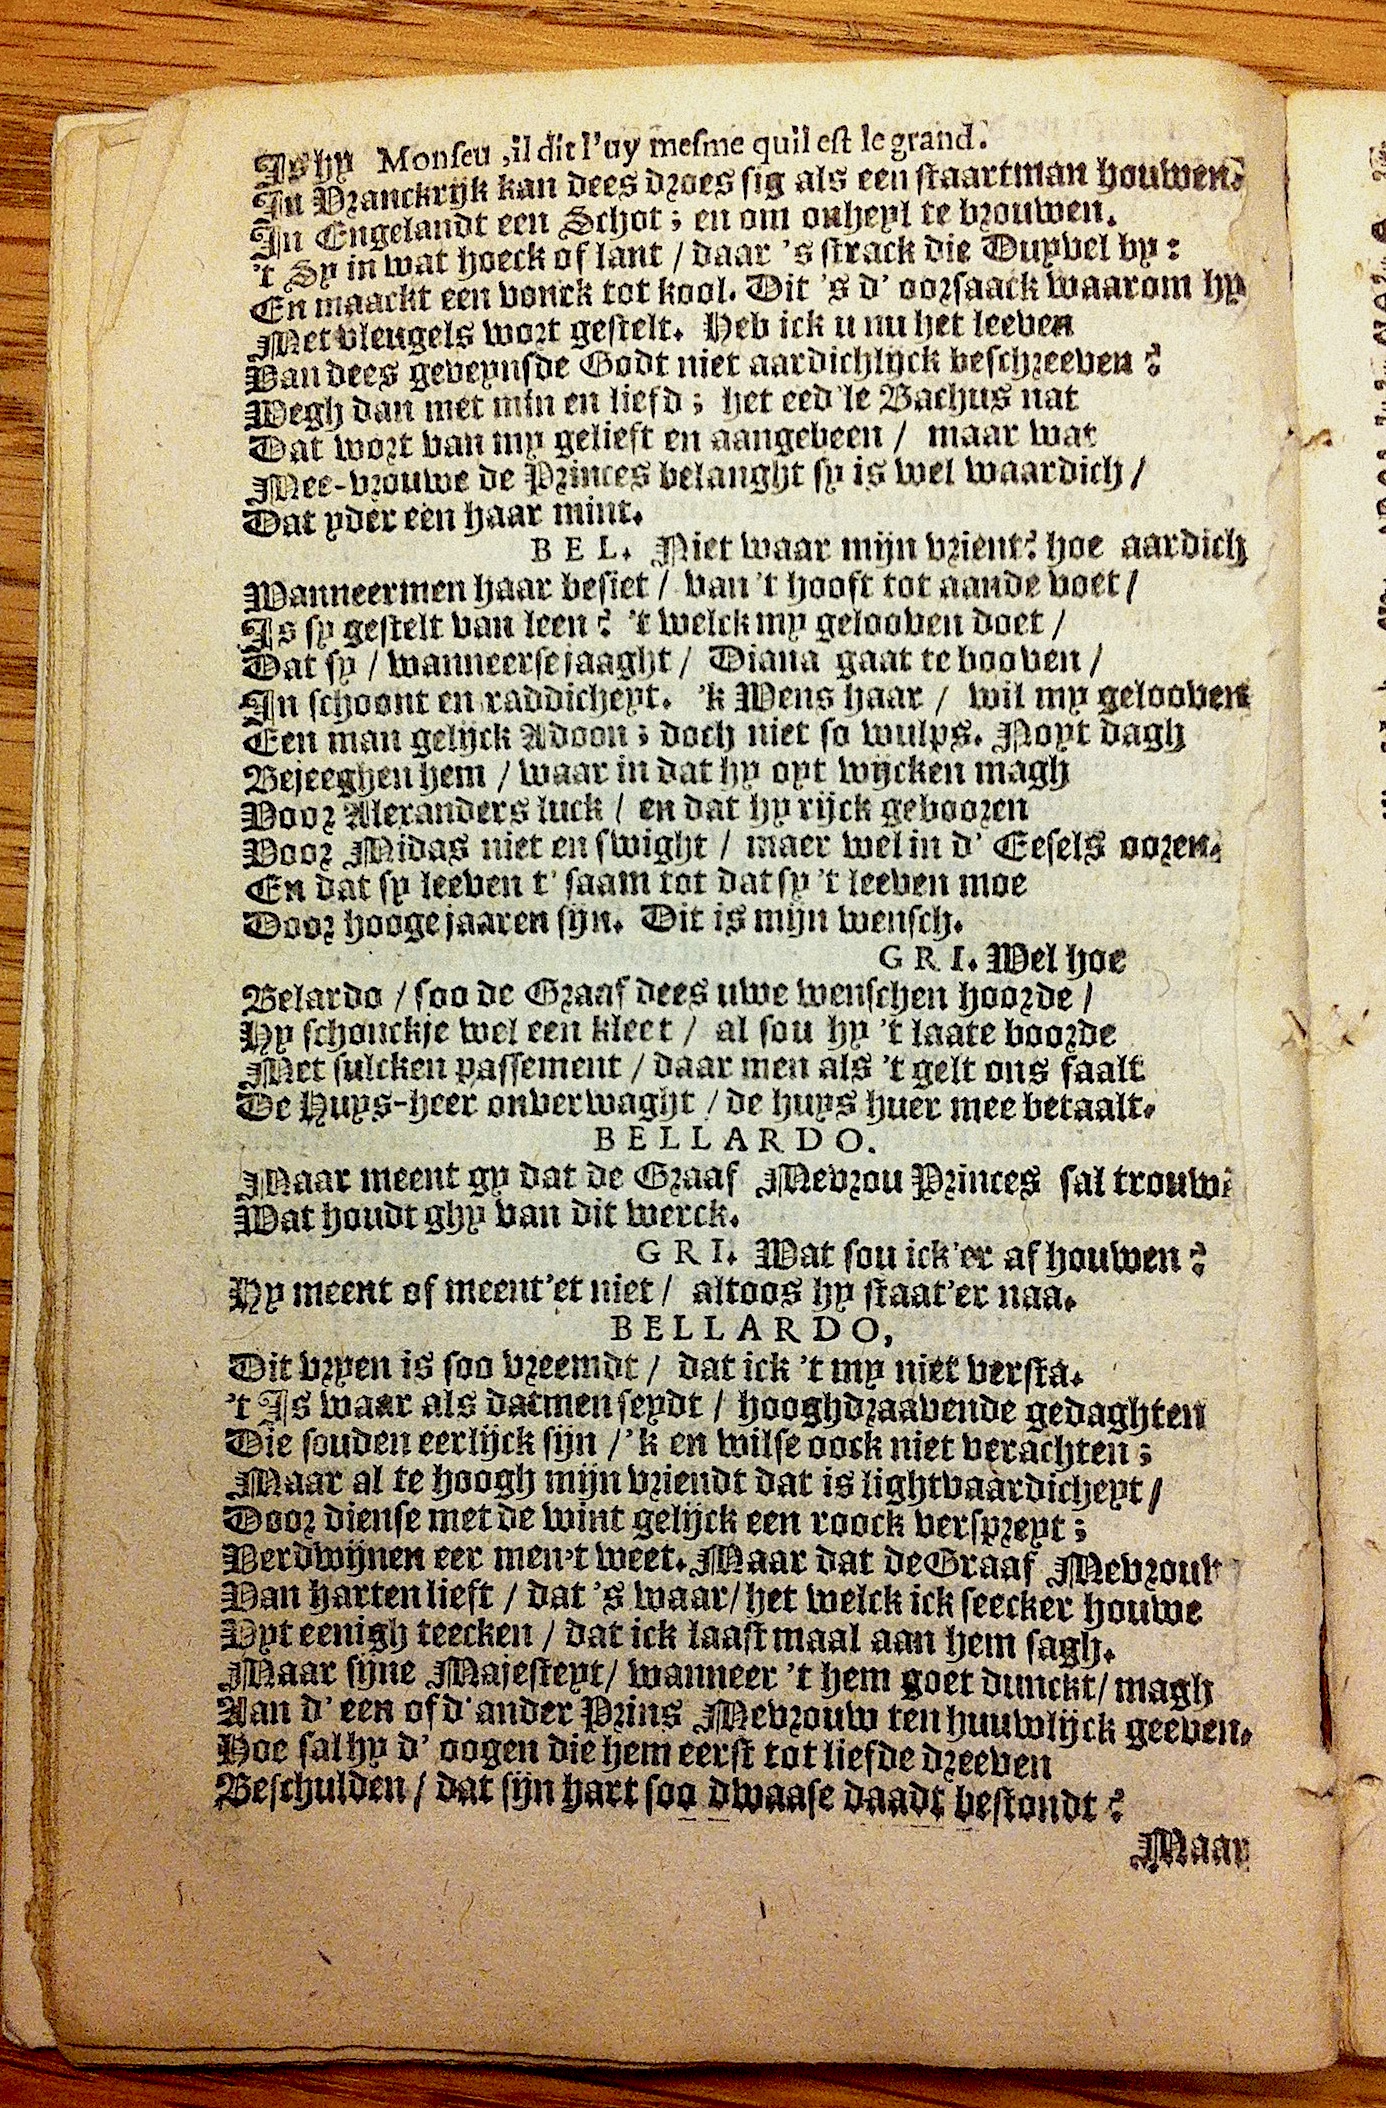 Is hy Monseu, il dit l'uy mesme quil est le grand.
In Vranckrijk kan dees droes sig als een staartman houwen.
In Engelandt een Schot; en om onheyl te brouwen.
't Sy in wat hoeck of lant / daar 's strack die Duyvel by:
En maackt een vonck tot kool. Dit 's d' oorsaack waarom hy
Met vleugels wort gestelt. Heb ick u nu het leeven
Van dees geveynsde Godt niet aardichlijck beschreeven?
Wegh dan met min en liefd; het eed'le Bachus nat
Dat wort van my gelieft en aangebeen / maar wat
Mee-vrouwe de Princes belanght sy is wel waardich /
Dat yder een haar mint.
BEL. Niet waar mijn vrient? hoe aardich
Wanneermen haar besiet / van 't hooft tot aande voet /
Is sy gestelt van leen? 't welck my gelooven doet /
Dat sy / wanneerse jaaght / Diana gaat te booven /
In schoont en raddicheyt. 'k Wens haar / wil my gelooven
Een man gelijck Adoon; doch niet so wulps. Noyt dagh
Bejeeghen hem / waar in dat hy oyt wijcken magh
Voor Alexanders luck / en dat hy rijck gebooren
Voor Midas niet en swight / maer wel in d' Eesels ooren.
En dat sy leeven t' saam tot dat sy 't leeven moe
Door hooge jaaren sijn. Dit is mijn wensch.
GRI. Wel hoe
Belardo / soo de Graaf dees uwe wenschen hoorde /
Hy schonckje wel een kleet / al sou hy 't laate boorde
Met sulcken passement / daar men als 't gelt ons faalt
De Huys-heer onverwaght / de huys huer mee betaalt.
BELLARDO.
Maar meent gy dat de Graaf Mevrou Princes sal trouwē
Wat houdt ghy van dit werck.
GRI. Wat sou ick'er af houwen?
Hy meent of meent'et niet / altoos hy staat'er naa.
BELLARDO,
Dit vryen is soo vreemdt / dat ick 't my niet versta.
't Is waar als datmen seydt / hooghdraavende gedaghten
Die souden eerlijck sijn / 'k en wilse oock niet verachten;
Maar al te hoogh mijn vriendt dat is lightvaardicheyt /
Door diense met de wint gelijck een roock verspreyt;
Verdwijnen eer men't weet. Maar dat de Graaf Mevrouw
Van harten lieft / dat 's waar / het welck ick seecker houwe
Uyt eenigh teecken / dat ick laast maal aan hem sagh.
Maar sijne Majesteyt / wanneer 't hem goet dunckt / magh
Aan d' een of d' ander Prins Mevrouw ten huuwlijck geeven.
Hoe sal hy d' oogen die hem eerst tot liefde dreeven
Beschulden / dat sijn hart soo dwaase daadt bestondt?
Maar